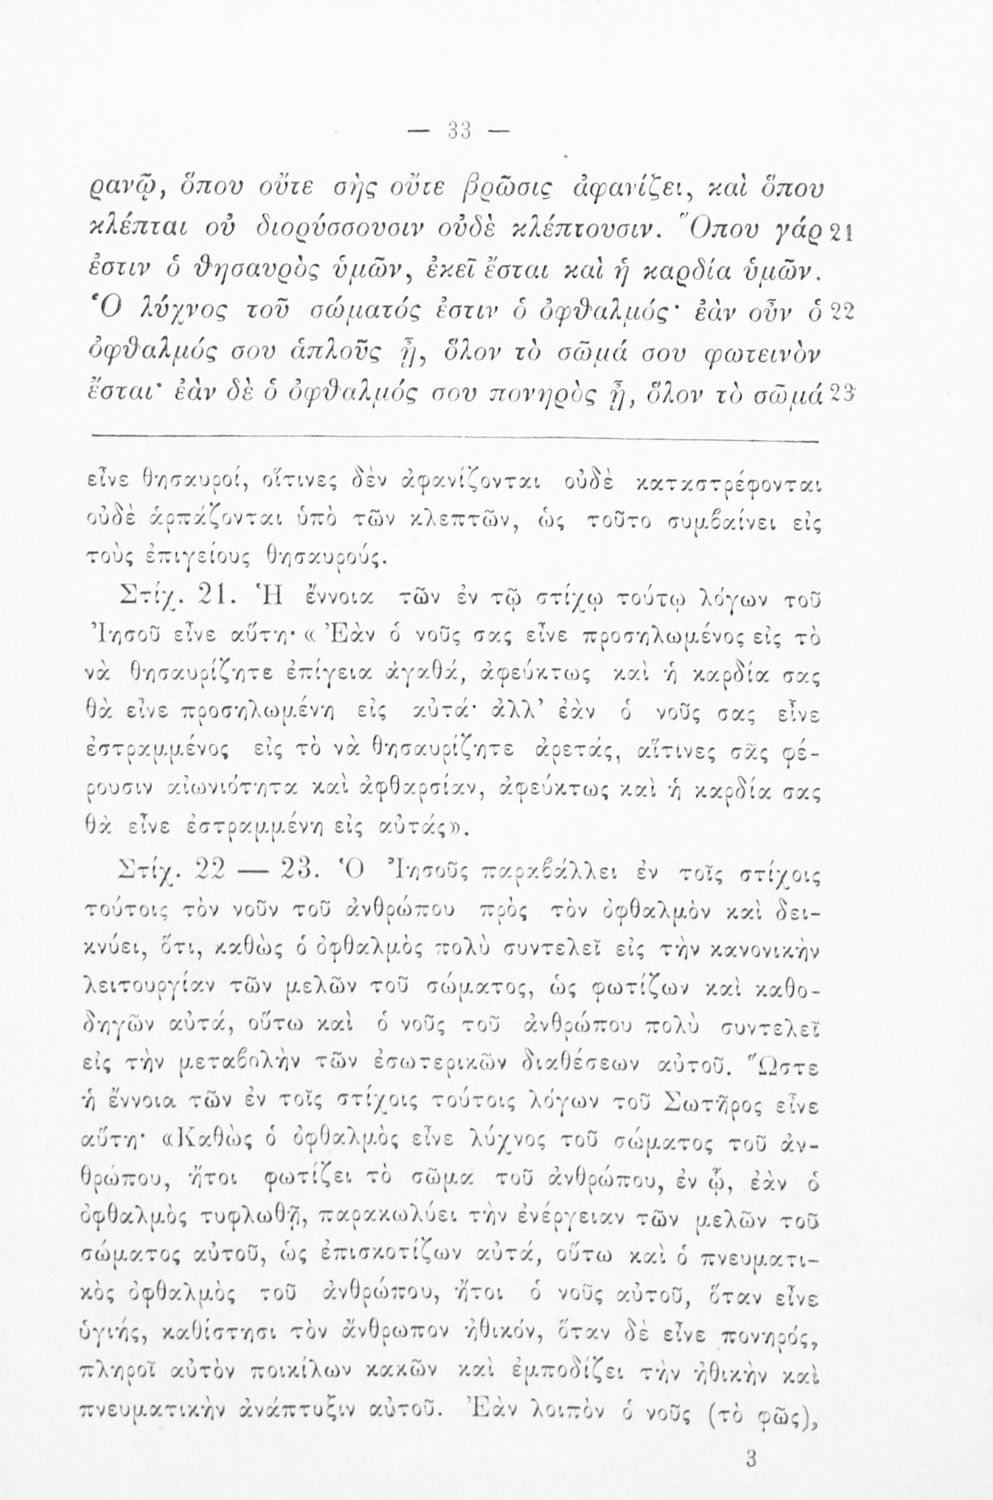 — 33 —
ρανῷ, ὅπου οὔτε σὴς οὔτε βρῶσις ἀφανίζει, καὶ ὅπου
κλέπται οὐ διορύσσουσιν οὐδὲ κλέπτουσιν. Ὅπου γάρ 21
ἐστιν ὁ θησαυρὸς ὑμῶν, ἐκεῖ ἔσται καὶ ἡ καρδία ὑμῶν.
Ὁ λύχνος τοῦ σώματός ἐστιν ὁ ὀφθαλμός· ἐὰν οὖν ὁ 22
ὀφθαλμός σου ἁπλοῦς ᾖ, ὅλον τὸ σῶμά σου φωτεινὸν
ἔσται· ἐὰν δὲ ὁ ὀφθαλμός σου πονηρὸς ᾖ, ὅλον τὸ σῶμά 23
εἶνε θησαυροί, οἵτινες δὲν ἀφανίζονται οὐδὲ καταστρέφονται
οὐδὲ ἁρπάζονται ὑπὸ τῶν κλεπτῶν, ὡς τοῦτο συμβαίνει εἰς
τοὺς ἐπιγείους θησαυρούς.
Στίχ. 21. Ἡ ἔννοια τῶν ἐν τῷ στίχῳ τούτῳ λόγων τοῦ
Ἰησοῦ εἶνε αὕτη· « Ἐὰν ὁ νοῦς σας εἶνε προσηλωμένος εἰς τὸ
νὰ θησαυρίζητε ἐπίγεια ἀγαθά, ἀφεύκτως καὶ ἡ καρδία σας
θὰ εἶνε προσηλωμένη εἰς αὐτά· ἀλλ’ ἐὰν ὁ νοῦς σας εἶνε
ἐστραμμένος εἰς τὸ νὰ θησαυρίζητε ἀρετάς, αἵτινες σᾶς φέ-
ρουσιν αἰωνιότητα καὶ ἀφθαρσίαν, ἀφεύκτως καὶ ἡ καρδία σας
θὰ εἶνε ἐστραμμένη εἰς αὐτάς».
Στίχ. 22 — 23. Ὁ Ἰησοῦς παραβάλλει ἐν τοῖς στίχοις
τούτοις τὸν νοῦν τοῦ ἀνθρώπου πρὸς τὸν ὀφθαλμὸν καὶ δει-
κνύει, ὅτι, καθὼς ὁ ὀφθαλμὸς πολὺ συντελεῖ εἰς τὴν κανονικὴν
λειτουργίαν τῶν μελῶν τοῦ σώματος, ὡς φωτίζων καὶ καθο-
δηγῶν αὐτά, οὕτω καὶ ὁ νοῦς τοῦ ἀνθρώπου πολὺ συντελεῖ
εἰς τὴν μεταβολὴν τῶν ἐσωτερικῶν διαθέσεων αὐτοῦ. Ὥστε
ἡ ἔννοια τῶν ἐν τοῖς στίχοις τούτοις λόγων τοῦ Σωτῆρος εἶνε
αὕτη· «Καθὼς ὁ ὀφθαλμὸς εἶνε λύχνος τοῦ σώματος τοῦ ἀν-
θρώπου, ἤτοι φωτίζει τὸ σῶμα τοῦ ἀνθρώπου, ἐν ᾧ, ἐὰν ὁ
ὀφθαλμὸς τυφλωθῇ, παρακωλύει τὴν ἐνέργειαν τῶν μελῶν τοῦ
σώματος αὐτοῦ, ὡς ἐπισκοτίζων αὐτά, οὕτω καὶ ὁ πνευματι-
κὸς ὀφθαλμὸς τοῦ ἀνθρώπου, ἤτοι ὁ νοῦς αὐτοῦ, ὅταν εἶνε
ὑγιής, καθίστησι τὸν ἄνθρωπον ἠθικόν, ὅταν δὲ εἶνε πονηρός,
πληροῖ αὐτὸν ποικίλων κακῶν καὶ ἐμποδίζει τὴν ἠθικὴν καὶ
πνευματικὴν ἀνάπτυξιν αὐτοῦ. Ἐὰν λοιπὸν ὁ νοῦς (τὸ φῶς),
3